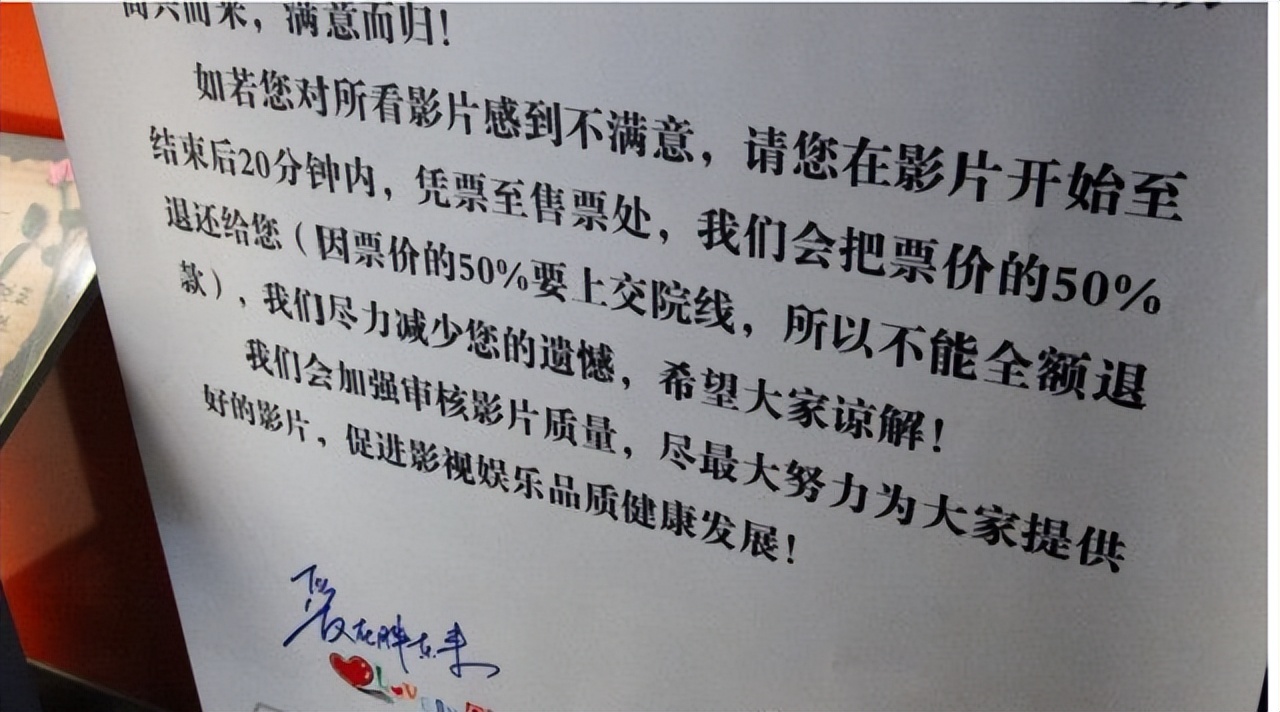 高兴而来，满意而归！
如若您对所看影片感到不满意，请您在影片开始至
结束后20分钟内，凭票至售票处，我们会把票价的50%
退还给您（因票价的50%要上交院线，所以不能全额退
款），我们尽力减少您的遗憾，希望大家谅解！
我们会加强审核影片质量，尽最大努力为大家提供
好的影片，促进影视娱乐品质健康发展！
爱在胖东来
LOVE